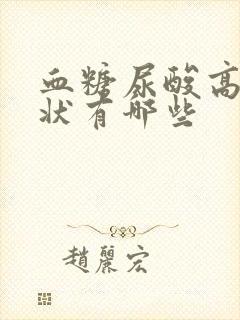 血糖尿酸高
状有哪些
趙麗宏